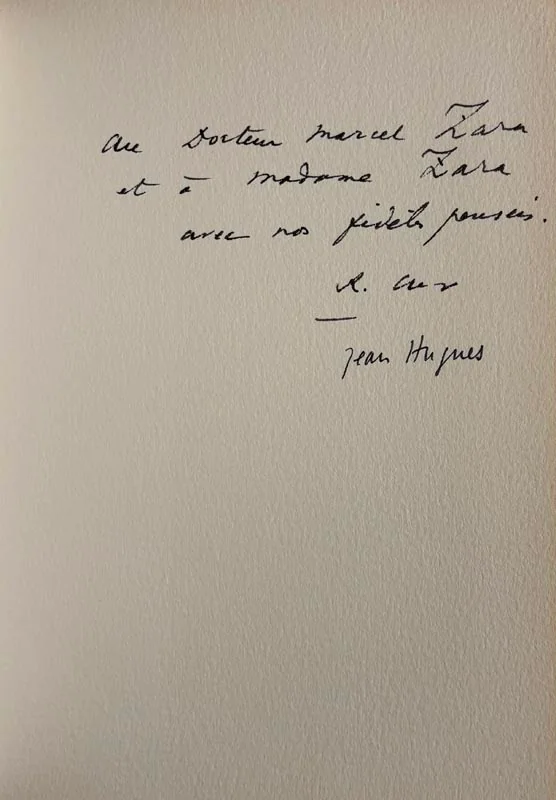 au Docteur Marcel Zara
et à madame Zara
avec nos fidèles pensées.
R. Char
Jean Hugues